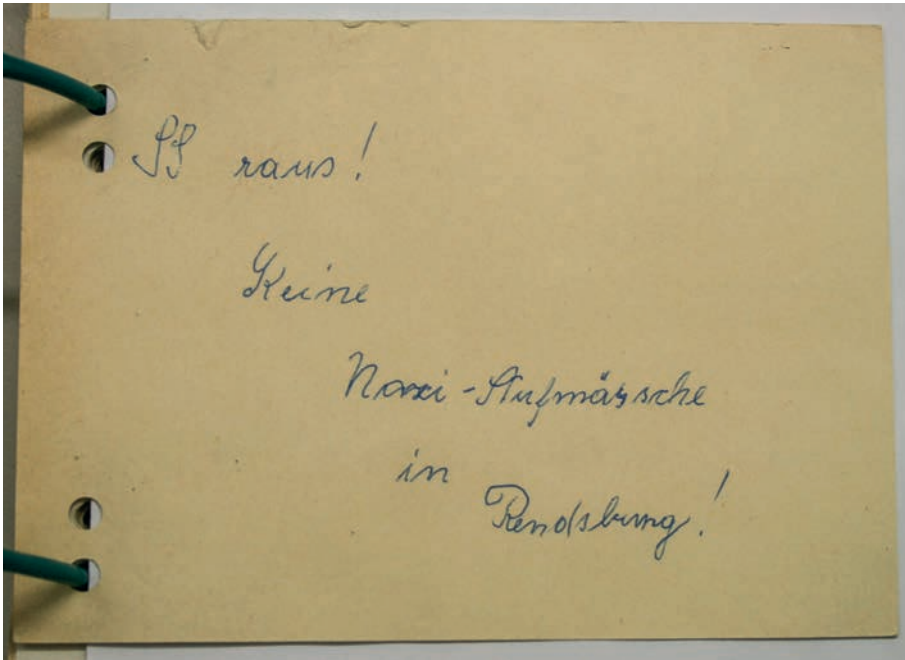 SS raus!
Keine
Nazi-Aufmärsche
in
Rendsburg!